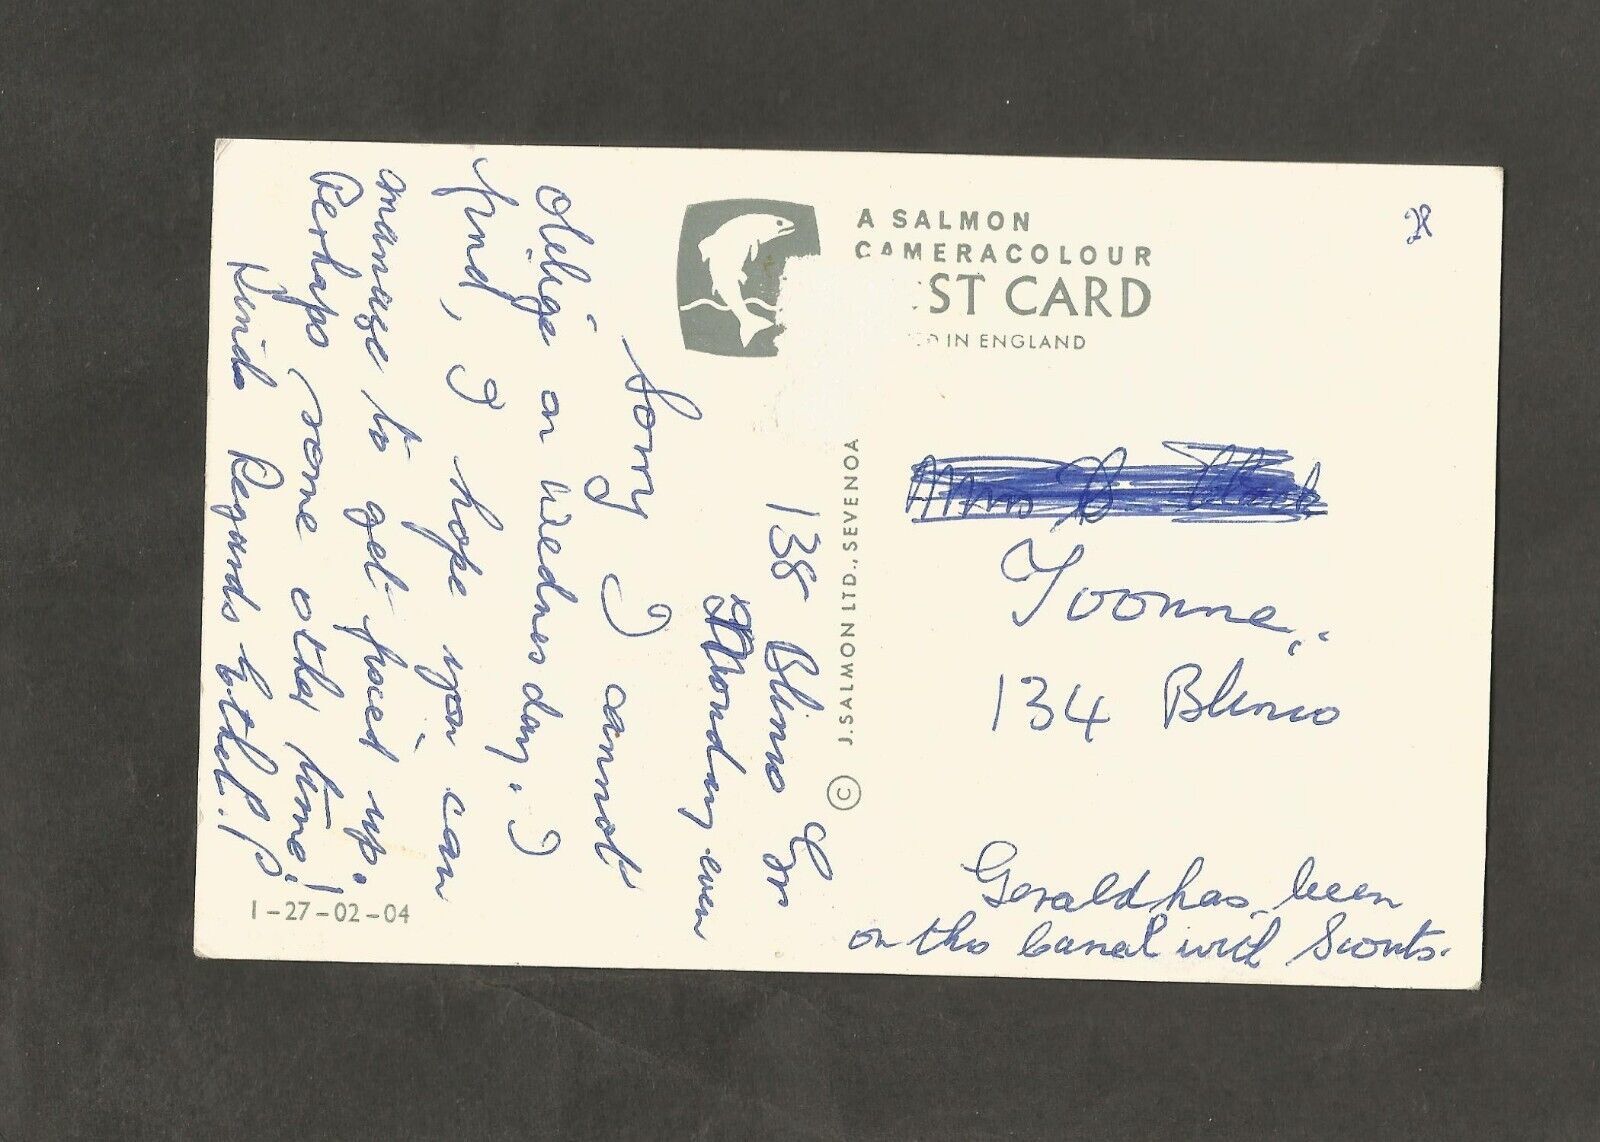 A SALMON
CAMERACOLOUR
ST CARD
IN ENGLAND
J. SALMON LTD., SEVENOA
©
1-27-02-04
138 Blinco Gr
Monday even
Sorry I cannot
oblige on Wednesday. I
find, I hope you can
manage to get fixed up.
Perhaps some other time!
Kind Regards Ethel. P
Mrs
Yvonne
134 Blinco
Gerald has been
on the Canal with Scouts.